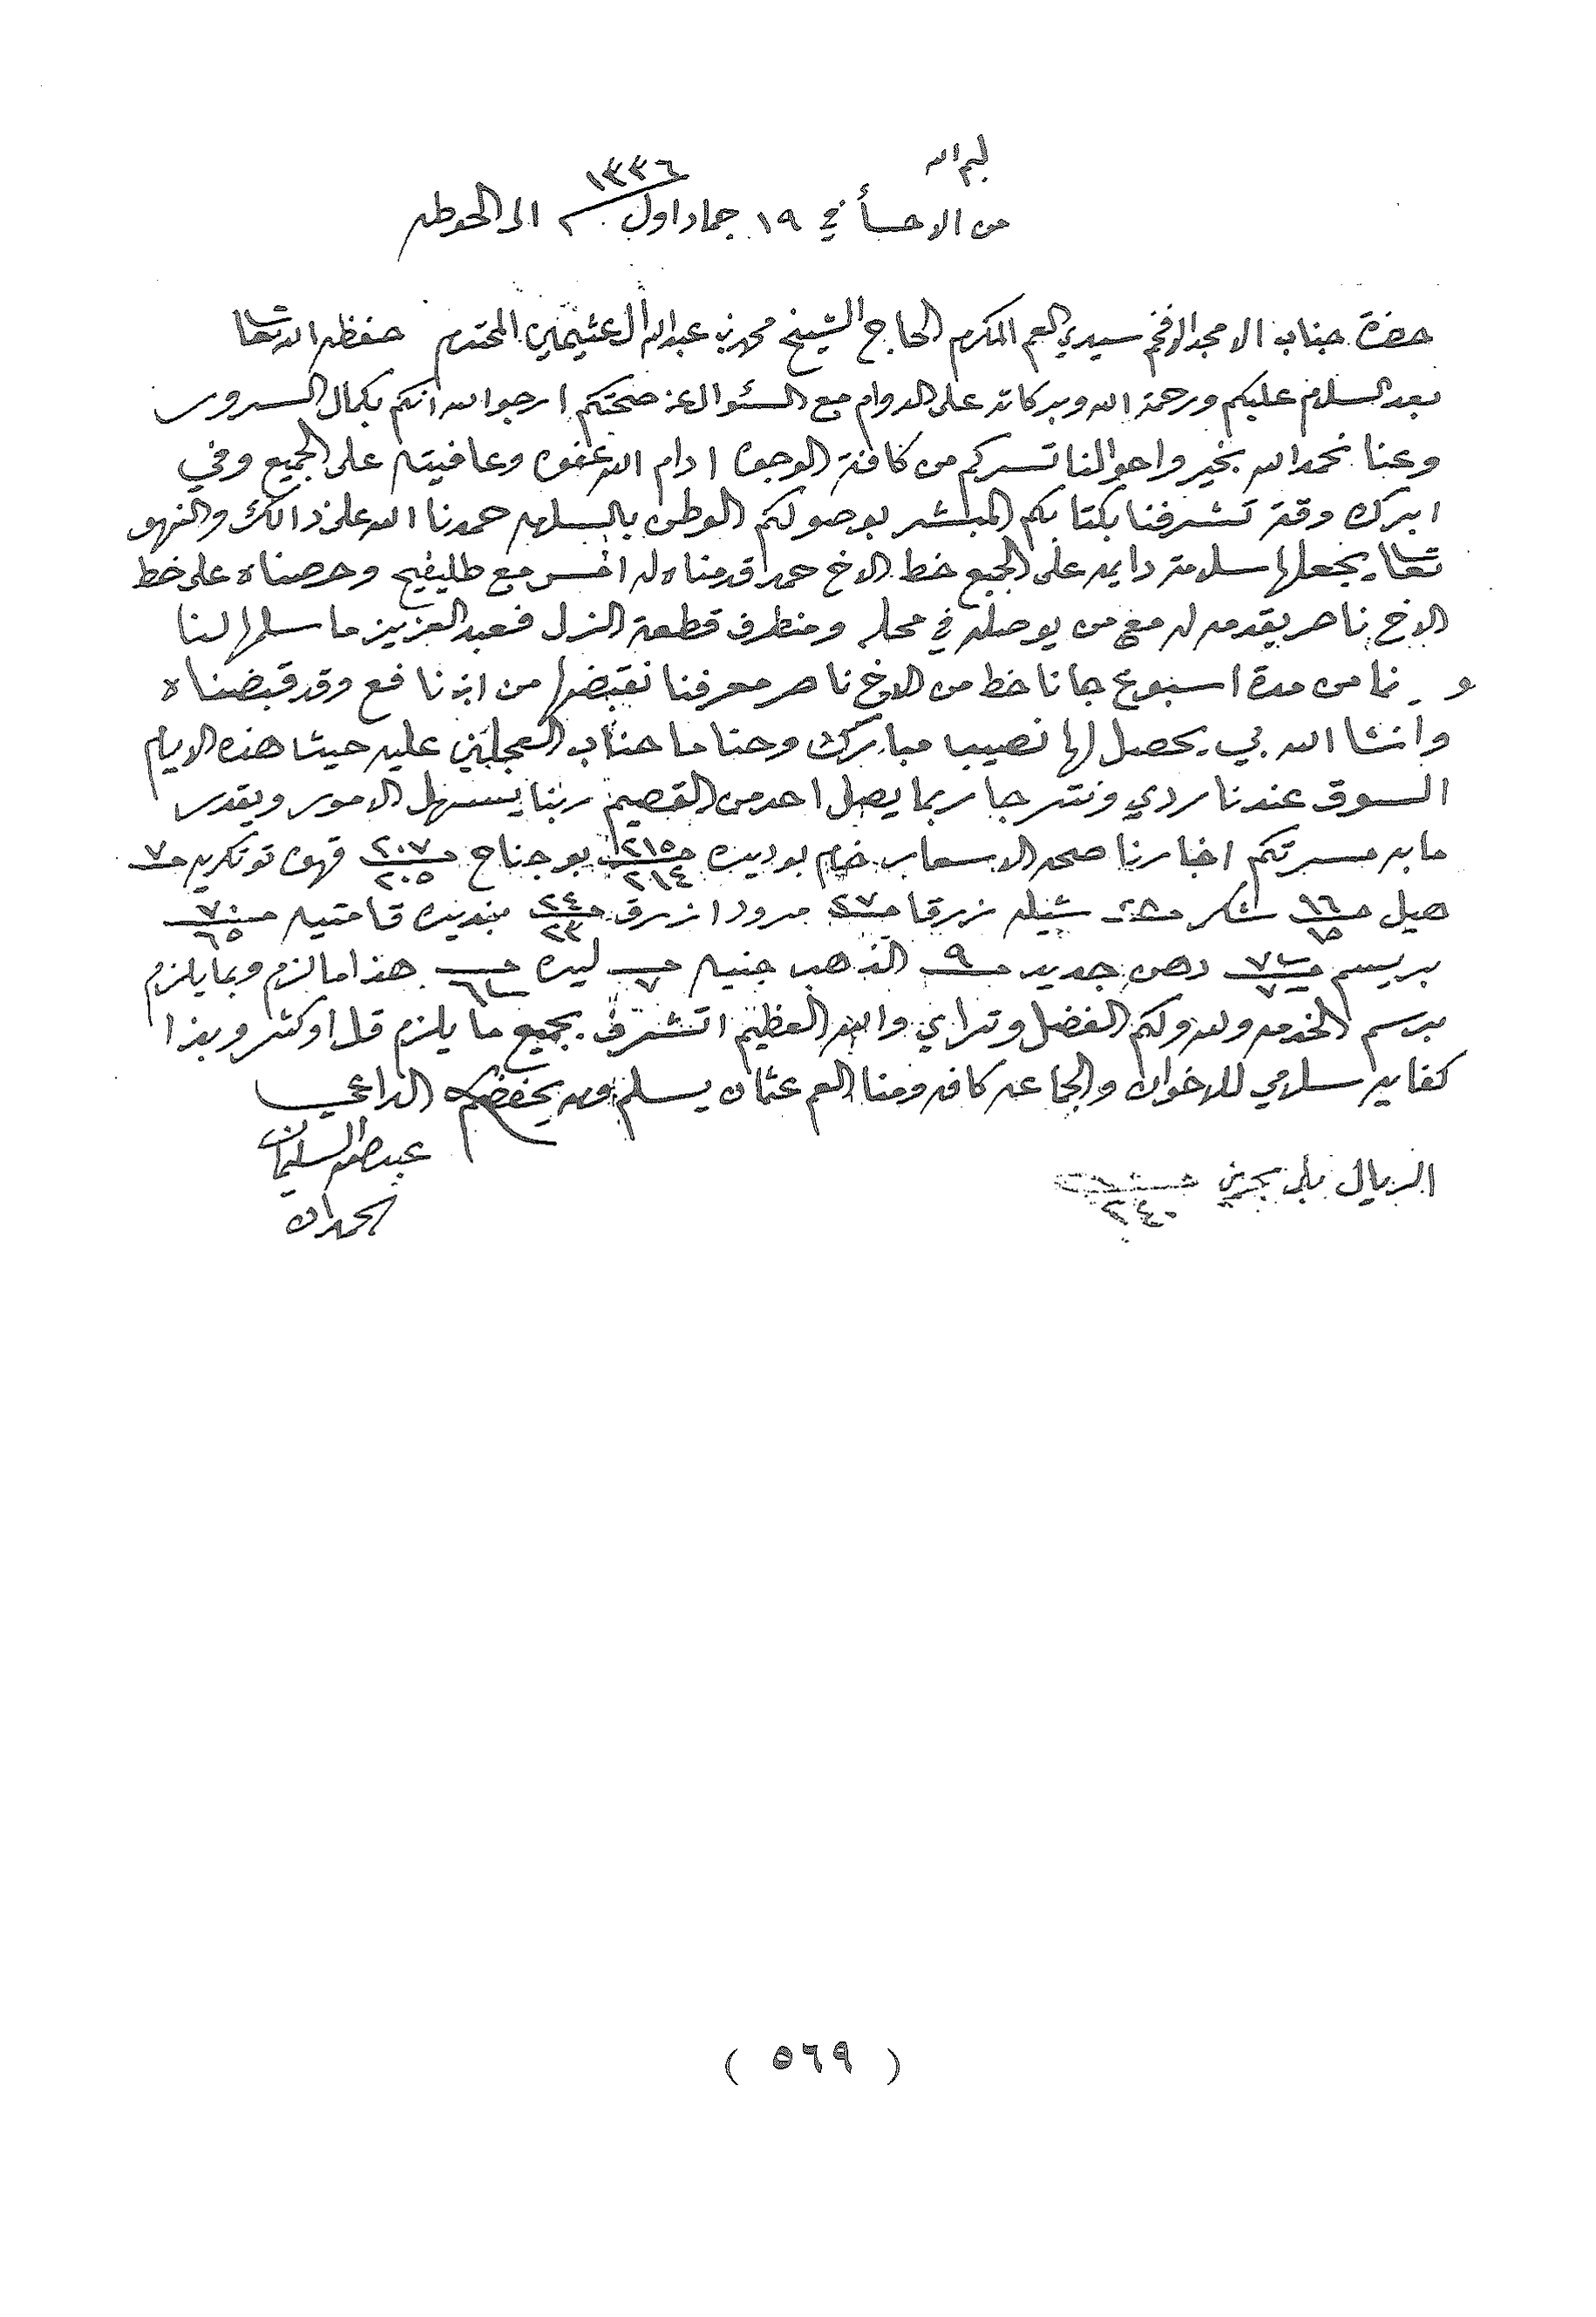 بسم الله
١٣٣٦
من الاحسأ في ١٩ جماد اول ٢ الى الحوطه
حضرة جناب الامجد الافخم سيدي العم المكرم الحاج الشيخ محمد بن عبدالله ال عثيمين المحترم حفظه الله تعا
بعد السلام عليكم ورحمة الله وبركاته على الدوام مع السئوال عن صحتكم ارجوا الله انكم بكمال السرور
وعنا نحمد الله بخير واحوالنا تسركم من كافة الوجوه ادام الله عفوه وعافيته على الجميع وفي
ابرك وقت تشرفنا بكتابكم المبشر بوصولكم الوطن بالسلامه حمدنا الله على ذالك والنهو
تعا يجعلها سلامة دايمه على الجميع خط الاخ حمد قدمناه له امس مع طليفيح وحرصناه على خط
الاخ ناصر يقدمه له مع من يوصله في محله ومنطرف قطعة الزل فعبدالعزيز ما سلمها لنا
و نما من مدة اسبوع جانا خط من الاخ ناصر معرفنا نقبضها من ابن نافع وقد قبضناه
وانشا الله بي يحصل لها نصيبا مبارك وحنا ما حناب العجلين عليه حيث هذه الايام
السوق عندنا ردي ونترجا ربما يصل احد من القصيم ربنا يسهل الامور ويقدر
ما به مسرتكم اخبارنا صحه الاسعار خام بو ديره ٢١٥ ٢١٤ بو جناح ٢٠٧ ٢٠٥ قهوه توتكريه ٧
هيل ١٦ ١٥ شكر ٢٥ شيله زرقا ٢٧ مرودا زرق ٢٤ ٢٣ بنديره قامتيه ٧٠ ٦٥
بريسم ٧ دهن جديد ٩ الذهب جنيه ٧ ليره ٦ هذا ما لزم وبما يلزم
برسم الخدمه ولله ولكم الفضل وتراي والله العظيم اتشرف بجميع ما يلزم قل او كثر وبذا
كفايه سلامي للاخوان والجماعه كافه ومنا العم عثمان يسلم والله يحفظكم الداعي
السليمان
الحمدان
الريال بلبحرين ٢٤٠
( ٥٦٩ )